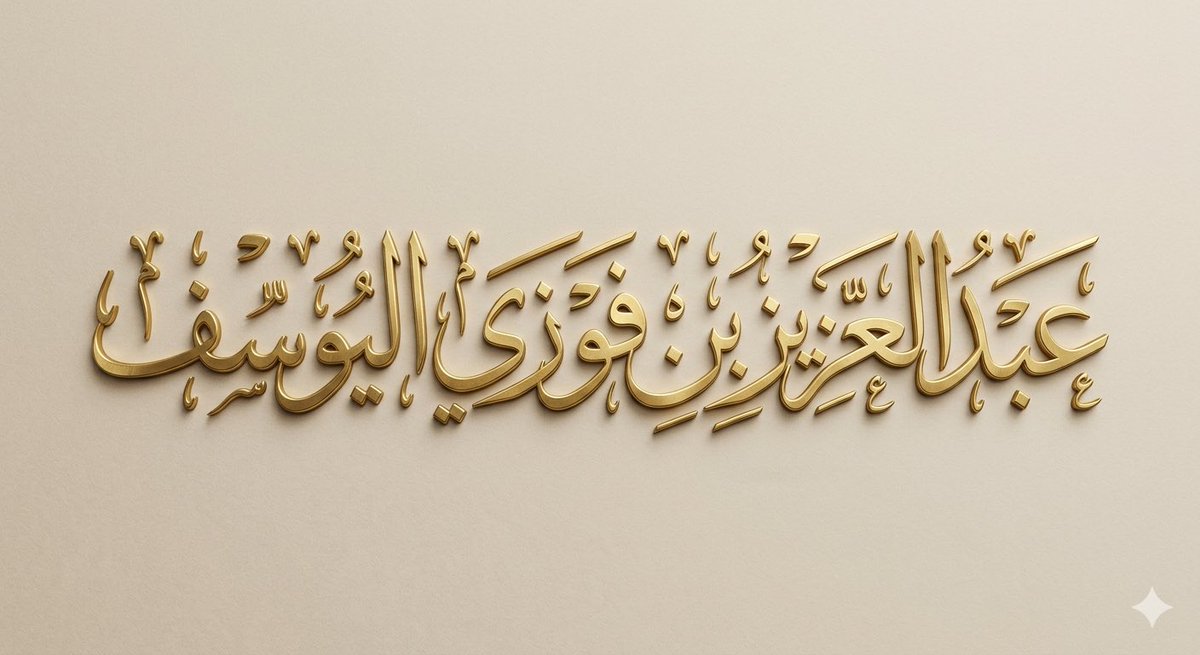 عَبْدُ العَزِيزِ بْنِ فَوْزَي اليُوسُف